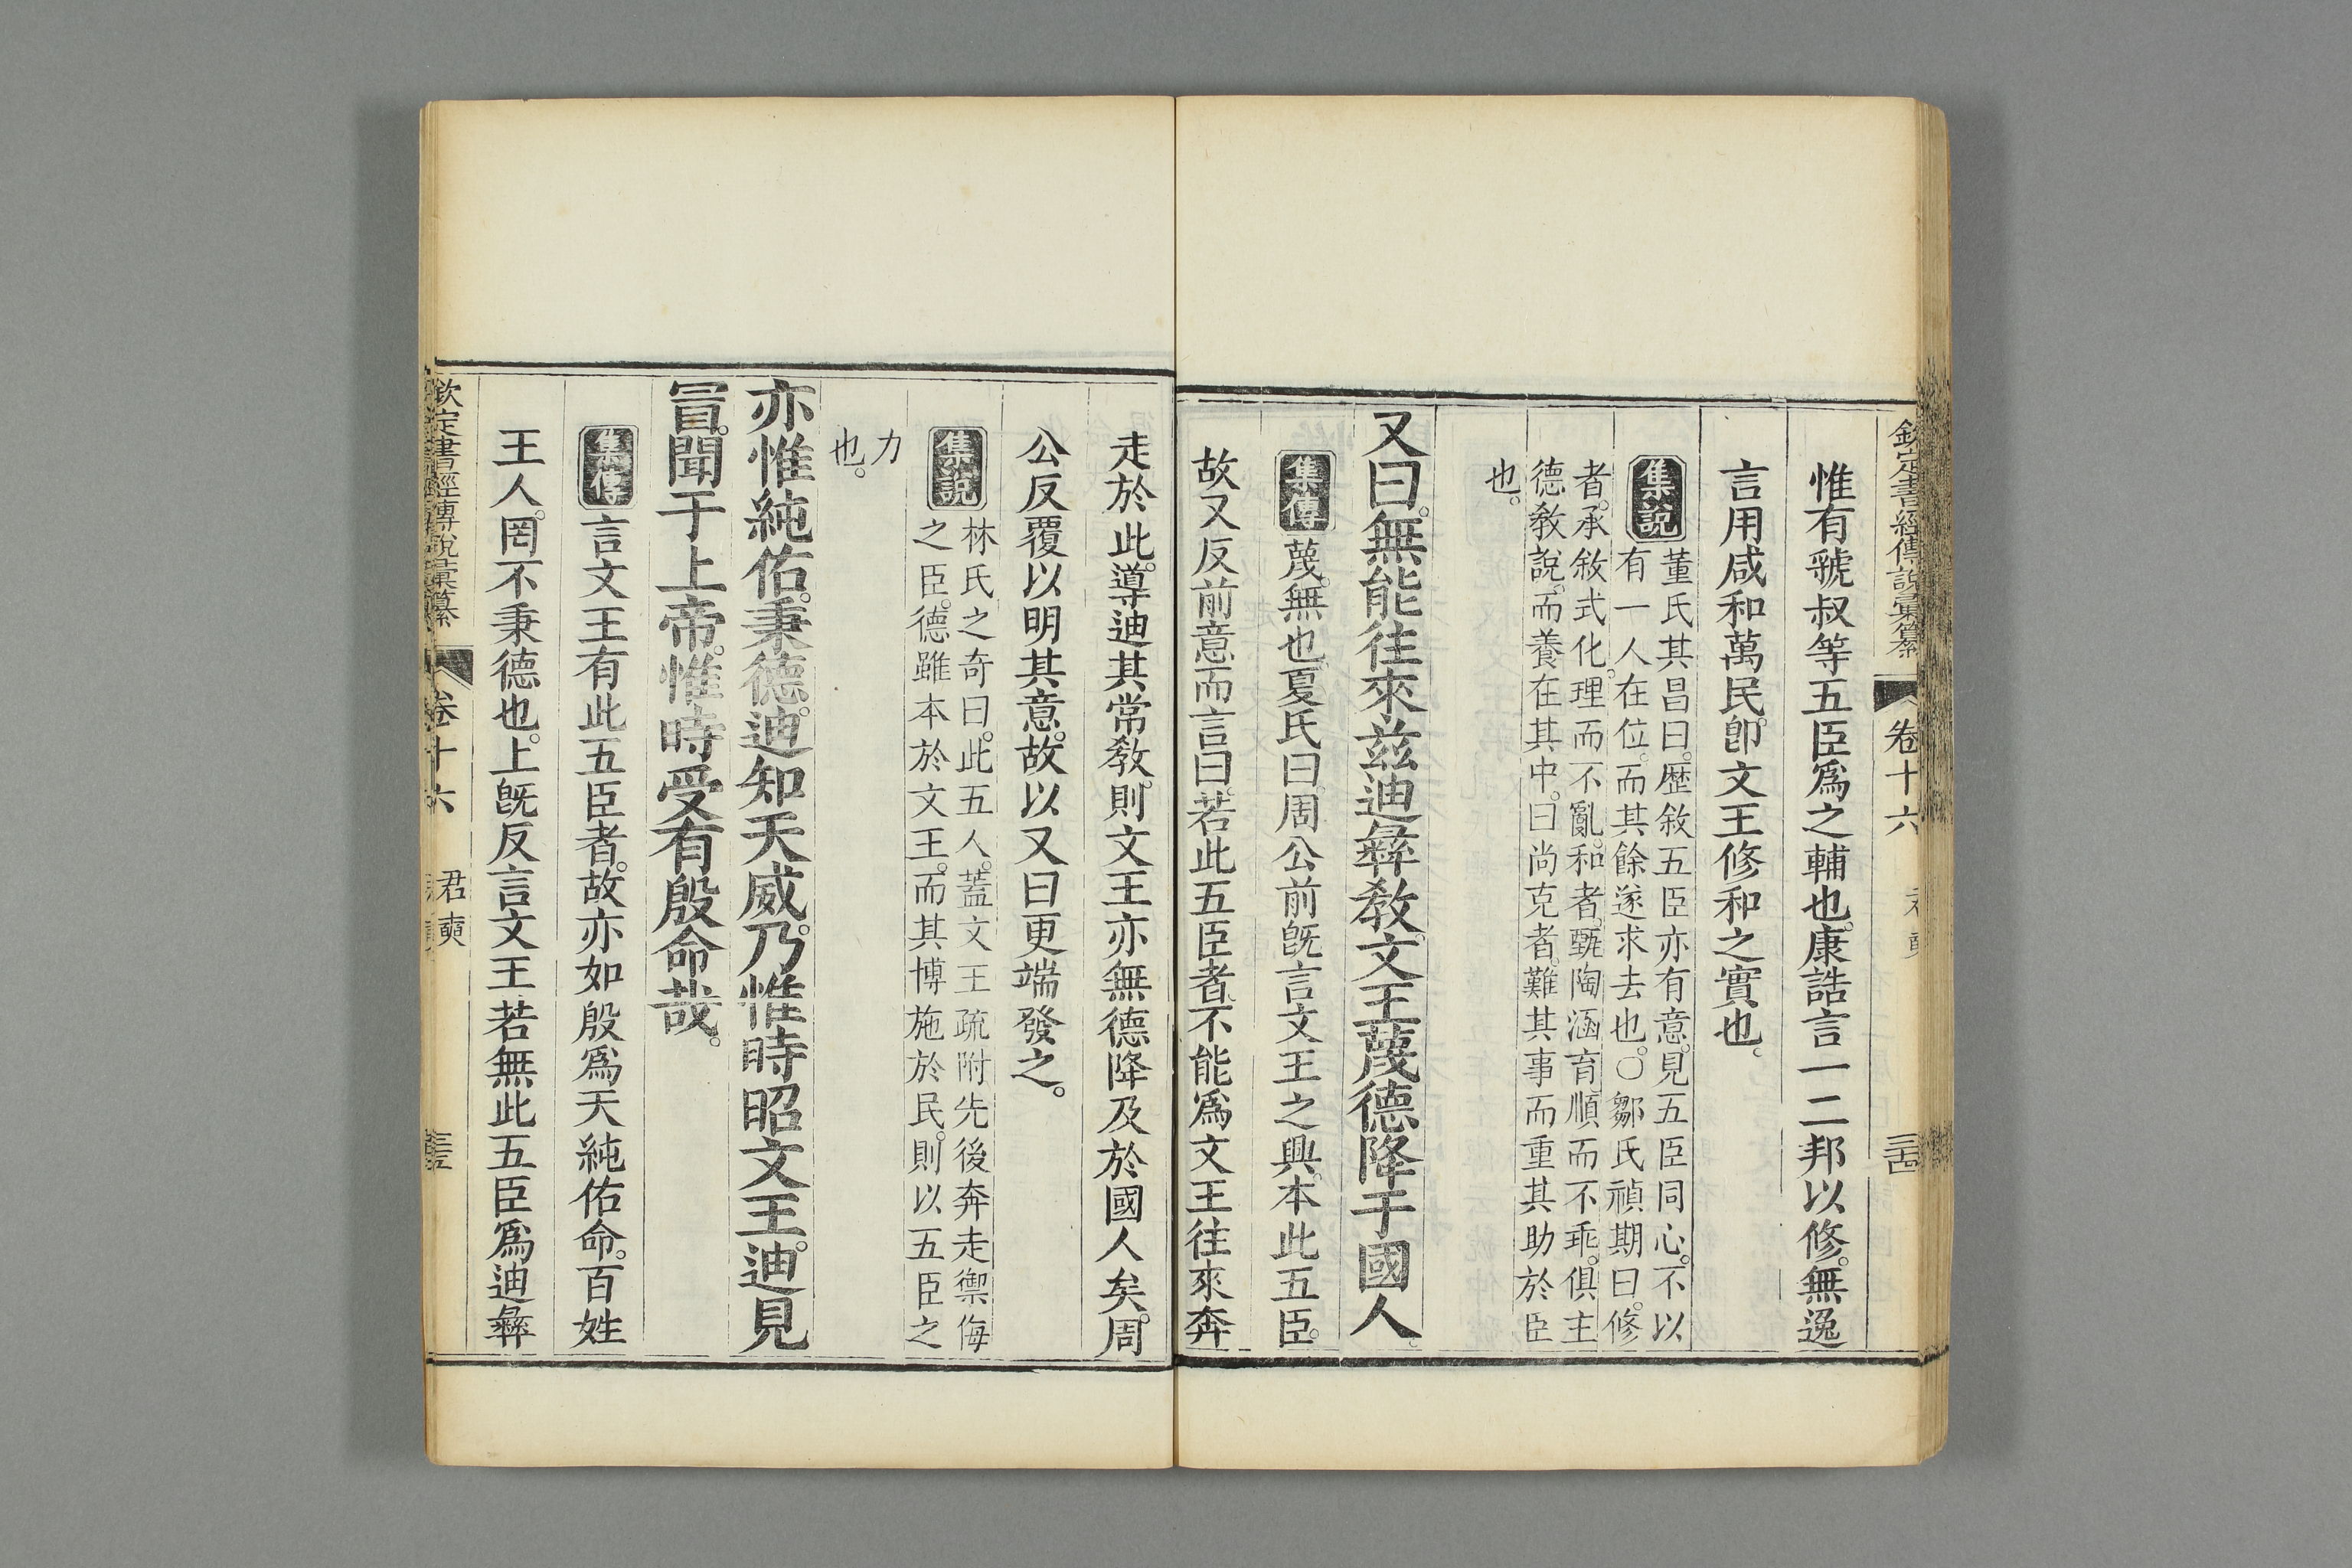 欽定書經傳說彙纂 卷十六 君奭 三四
惟有虢叔等五臣爲之輔也。康誥言一二邦以修。無逸
言用咸和萬民。卽文王修和之實也。
集說 董氏其昌曰。歷敘五臣亦有意。見五臣同心。不以
有一人在位。而其餘遂求去也。○鄒氏禎期曰。修
者。承敘式化。理而不亂。和者。甄陶涵育。順而不乖。俱主
德敎說。而養在其中。曰尚克者。難其事而重其助於臣
也。
又曰。無能往來茲迪彝敎。文王蔑德降于國人。
集傳 蔑。無也。夏氏曰。周公前旣言文王之興。本此五臣。
故又反前意而言曰。若此五臣者。不能爲文王往來奔
走於此。導迪其常敎。則文王亦無德降及於國人矣。周
公反覆以明其意。故以又曰更端發之。
集說 林氏之奇曰。此五人。蓋文王疏附先後奔走禦侮
之臣。德雖本於文王。而其博施於民。則以五臣之
力
也。
亦惟純佑。秉德。迪知天威。乃惟時昭文王。迪見
冒。聞于上帝。惟時受有殷命哉。
集傳 言文王有此五臣者。故亦如殷爲天純佑命。百姓
王人。罔不秉德也。上旣反言文王若無此五臣爲迪彝
欽定書經傳說彙纂 卷十六 君奭 三五